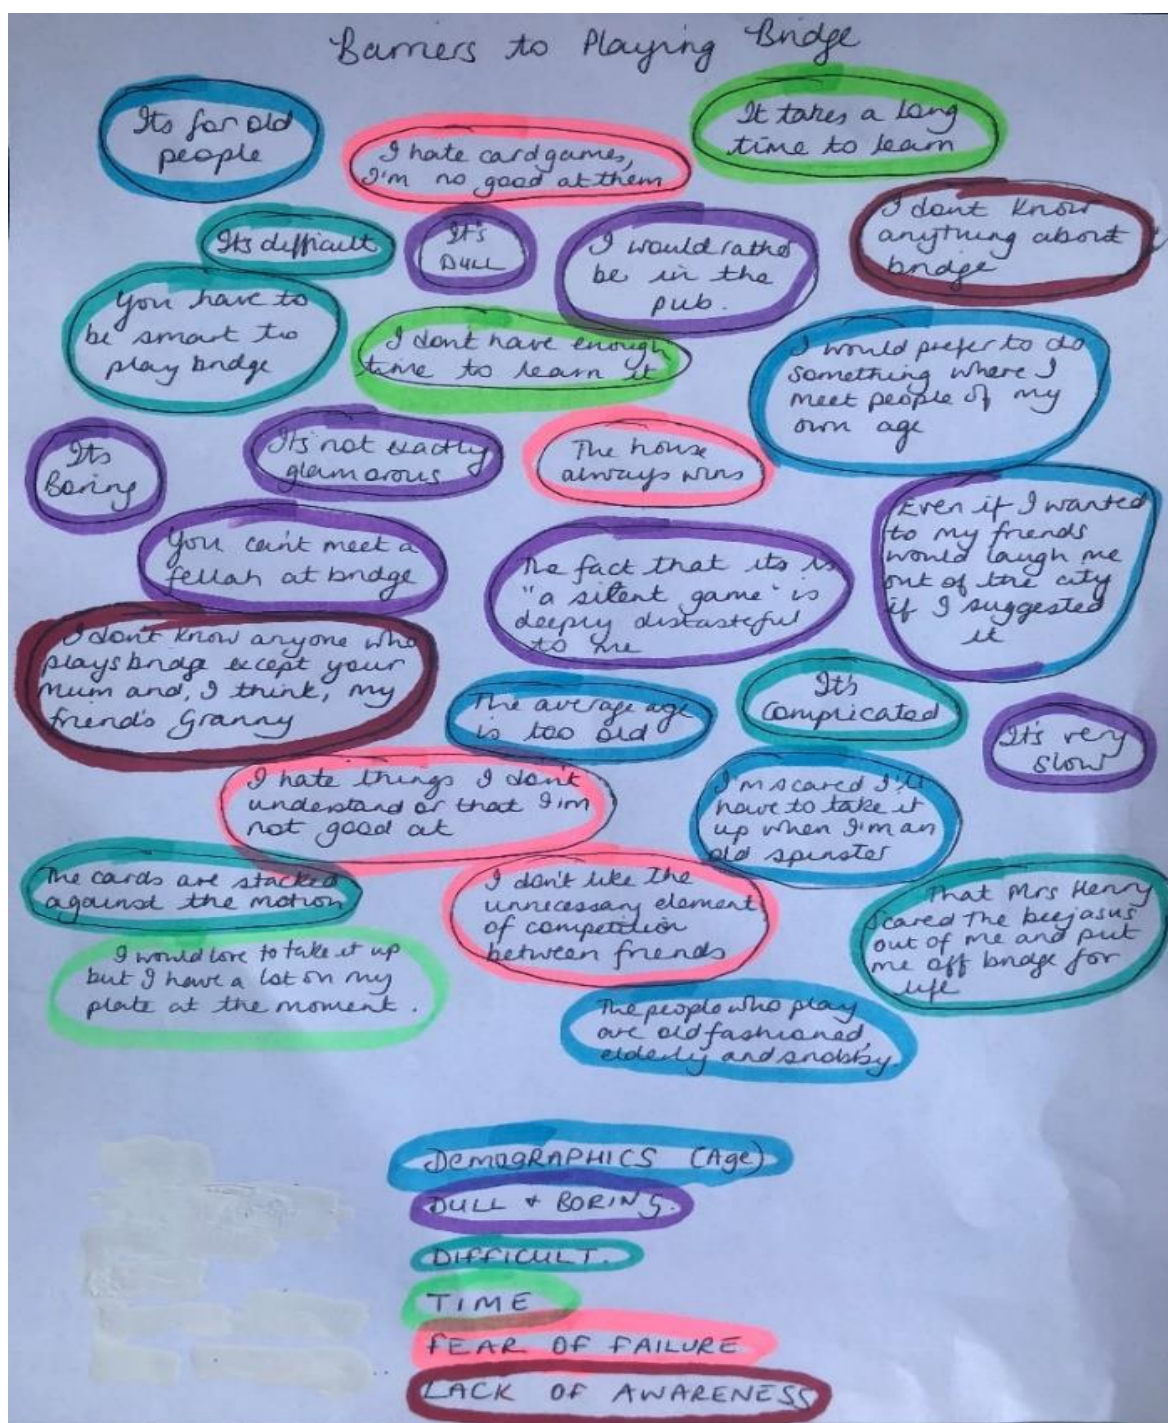 Barriers to Playing Bridge
Its for old
people
I hate card games,
I'm no good at them
It takes a long
time to learn
Its difficult
It's
DULL
I would rather
be in the
pub.
I dont know
anything about
bridge
You have to
be smart to
play bridge
I don't have enough
time to learn it
I would prefer to do
something where I
meet people of my
own age
Its
Boring
It's not exactly
glamorous
The house
always wins
Even if I wanted
to my friends
would laugh me
out of the city
if I suggested
it
You can't meet a
fellah at bridge
The fact that its is
"a silent game" is
deeply distasteful
to me
I don't know anyone who
plays bridge except your
mum and, I think, my
friend's Granny
The average age
is too old
It's
complicated
It's very
slow
I hate things I don't
understand or that I'm
not good at
I'm scared I'll
have to take it
up when I'm an
old spinster
The cards are stacked
against the motion
I don't like the
unnecessary element
of competition
between friends
That Mrs Henry
scared the beejasus
out of me and put
me off bridge for
life
I would love to take it up
but I have a lot on my
plate at the moment.
The people who play
are old fashioned,
elderly and snobby.
DEMOGRAPHICS (Age)
DULL + BORING.
DIFFICULT.
TIME
FEAR OF FAILURE
LACK OF AWARENESS